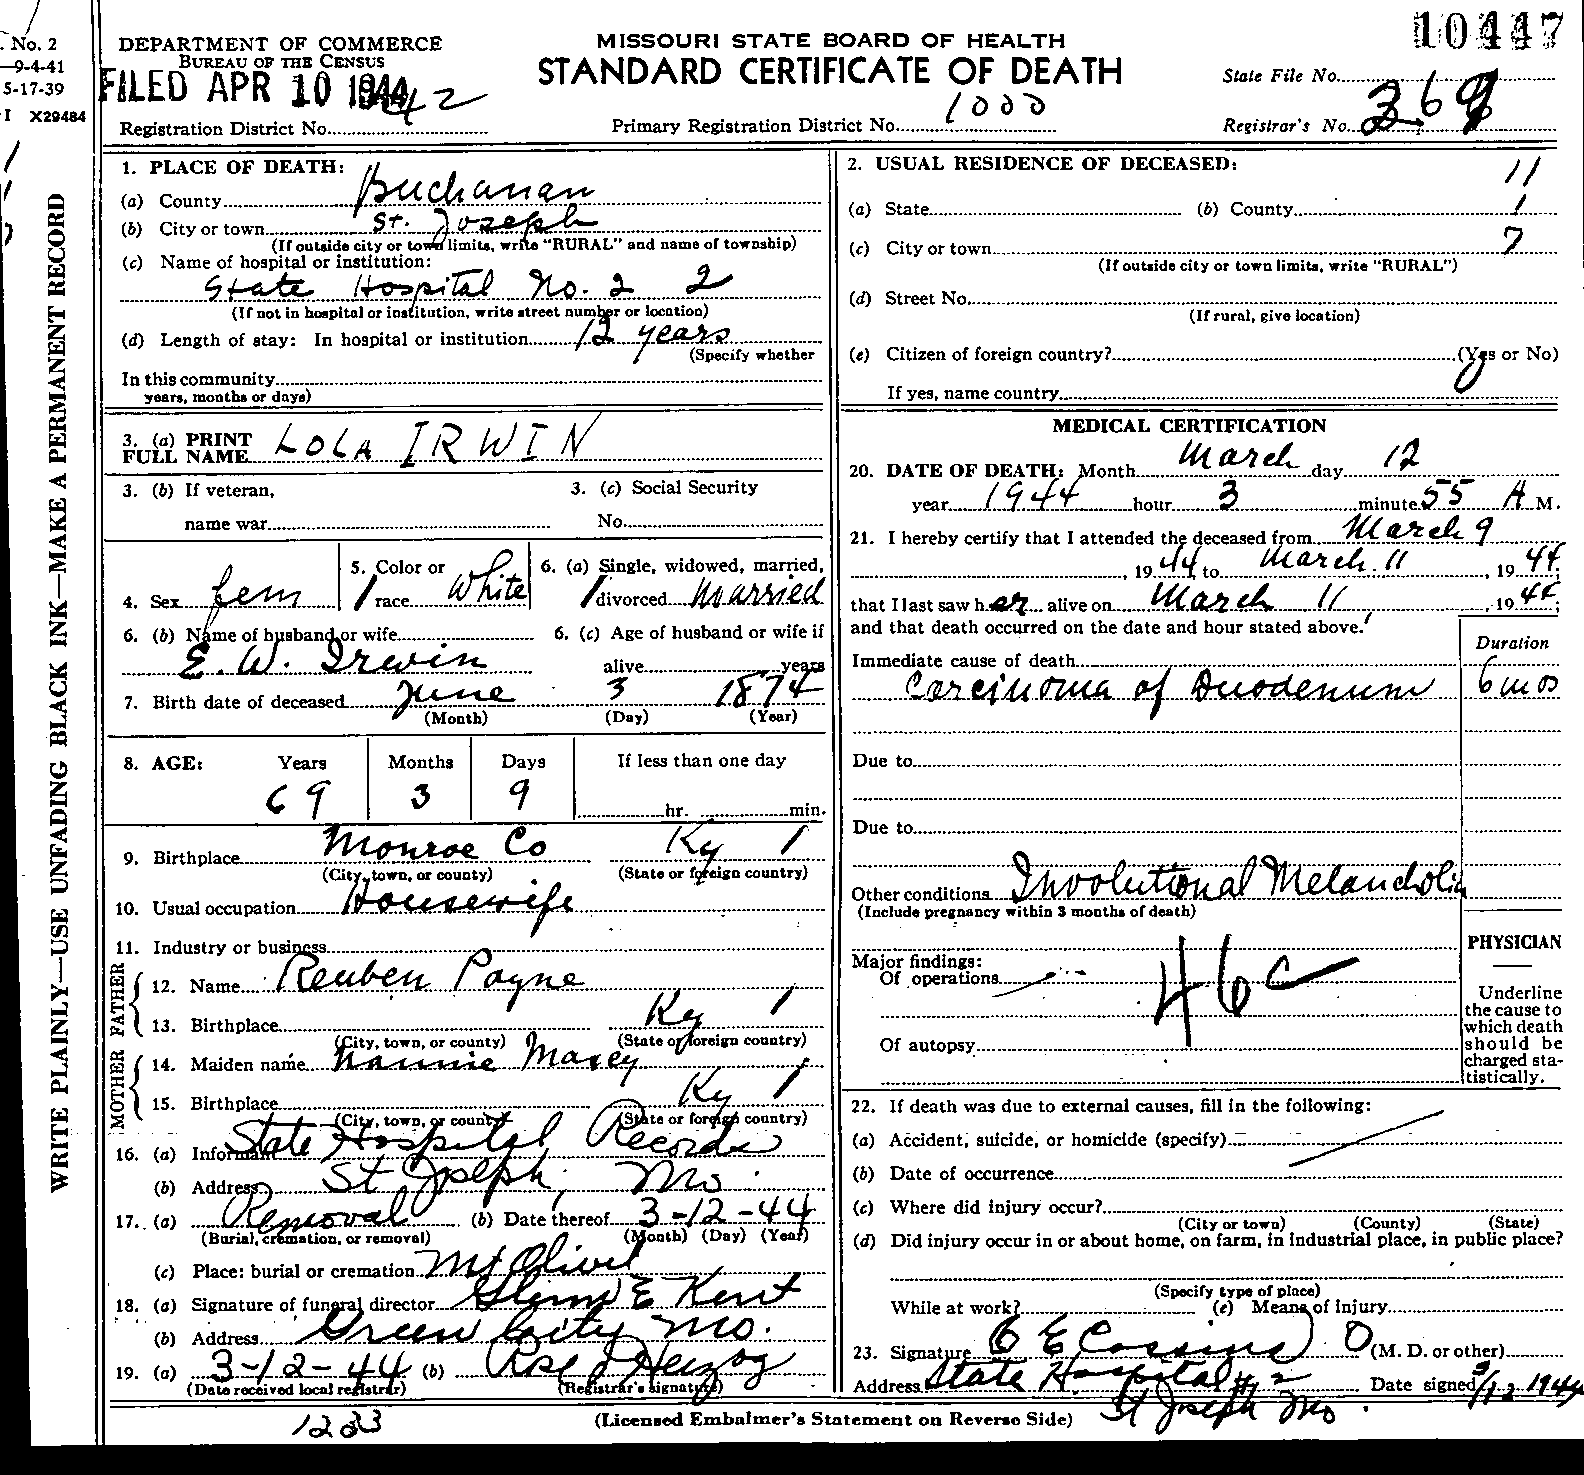 . No. 2
—9-4-41
5-17-39
I X29484
WRITE PLAINLY—USE UNFADING BLACK INK—MAKE A PERMANENT RECORD
DEPARTMENT OF COMMERCE
BUREAU OF THE CENSUS
FILED APR 10 1944
Registration District No. 42
MISSOURI STATE BOARD OF HEALTH
STANDARD CERTIFICATE OF DEATH
Primary Registration District No. 1000
10447
State File No.
Registrar's No. 369
1. PLACE OF DEATH:
(a) County Buchanan
(b) City or town St. Joseph
(If outside city or town limits, write "RURAL" and name of township)
(c) Name of hospital or institution:
State Hospital No. 2 2
(If not in hospital or institution, write street number or location)
(d) Length of stay: In hospital or institution 12 years
(Specify whether
In this community
years, months or days)
2. USUAL RESIDENCE OF DECEASED:
11
(a) State (b) County 1
(c) City or town 7
(If outside city or town limits, write "RURAL")
(d) Street No.
(If rural, give location)
(e) Citizen of foreign country? (Yes or No)
If yes, name country
3. (a) PRINT
FULL NAME LOLA IRWIN
3. (b) If veteran,
name war
3. (c) Social Security
No.
4. Sex fem
5. Color or
race White
6. (a) Single, widowed, married,
divorced Married
6. (b) Name of husband or wife
E. W. Irwin
6. (c) Age of husband or wife if
alive years
7. Birth date of deceased June 3 1874
(Month) (Day) (Year)
8. AGE: Years Months Days If less than one day
69 3 9 hr. min.
9. Birthplace Monroe Co Ky 1
(City, town, or county) (State or foreign country)
10. Usual occupation Housewife
11. Industry or business
FATHER
12. Name Reuben Payne
13. Birthplace Ky 1
(City, town, or county) (State or foreign country)
MOTHER
14. Maiden name Nannie Maxey
15. Birthplace Ky 1
(City, town, or county) (State or foreign country)
16. (a) Informant State Hospital Records
(b) Address St Joseph, Mo.
17. (a) Removal (b) Date thereof 3-12-44
(Burial, cremation, or removal) (Month) (Day) (Year)
(c) Place: burial or cremation Mt Olivet
18. (a) Signature of funeral director Glenn E Kent
(b) Address Green City Mo.
19. (a) 3-12-44 (b) Rose J Herzog
(Date received local registrar) (Registrar's signature)
MEDICAL CERTIFICATION
20. DATE OF DEATH: Month March day 12
year 1944 hour 3 minute 55 A M.
21. I hereby certify that I attended the deceased from March 9
, 1944 to March 11, 1944,
that I last saw her alive on March 11, 1944;
and that death occurred on the date and hour stated above.
Duration
Immediate cause of death
Carcinoma of Duodenum 6 mos
Due to
Due to
Other conditions Involutional Melancholia
(Include pregnancy within 3 months of death)
Major findings:
Of operations
46c
Of autopsy
PHYSICIAN
Underline
the cause to
which death
should be
charged sta-
tistically.
22. If death was due to external causes, fill in the following:
(a) Accident, suicide, or homicide (specify)
(b) Date of occurrence
(c) Where did injury occur?
(City or town) (County) (State)
(d) Did injury occur in or about home, on farm, in industrial place, in public place?
(Specify type of place)
While at work? (e) Means of injury
23. Signature (M. D. or other)
Address State Hospital #2 Date signed 3/12 1944
St Joseph Mo.
(Licensed Embalmer's Statement on Reverse Side)
1233